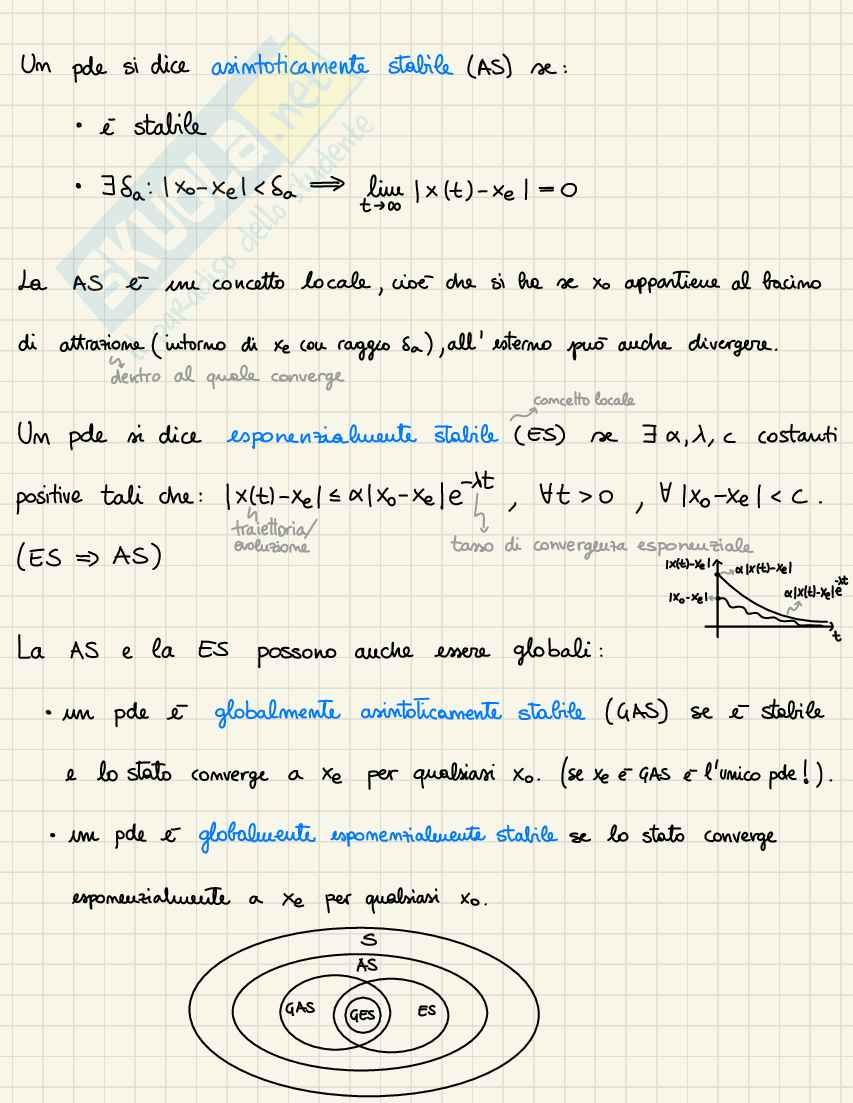 Un pde si dice asintoticamente stabile (AS) se:
• è stabile
• ∃ δa: |x₀-xe| < δa ⟹ lim t→∞ |x(t)-xe| = 0
SKUOLA.net
il paradiso dello studente
La AS è un concetto locale, cioè che si ha se x₀ appartiene al bacino
di attrazione (intorno di xe con raggio δa), all'esterno può anche divergere.
dentro al quale converge
concetto locale
Un pde si dice esponenzialmente stabile (ES) se ∃ α, λ, c costanti
positive tali che: |x(t)-xe| ≤ α|x₀-xe|e^-λt , ∀t>0 , ∀ |x₀-xe| < c.
traiettoria/
evoluzione
tasso di convergenza esponenziale
(ES ⇒ AS)
|x(t)-xe|
α|x(t)-xe|
|x₀-xe|
α|x(t)-xe|e^-λt
t
La AS e la ES possono anche essere globali:
• un pde è globalmente asintoticamente stabile (GAS) se è stabile
e lo stato converge a xe per qualsiasi x₀. (se xe è GAS è l'unico pde!).
• un pde è globalmente esponenzialmente stabile se lo stato converge
esponenzialmente a xe per qualsiasi x₀.
S
AS
GAS
GES
ES